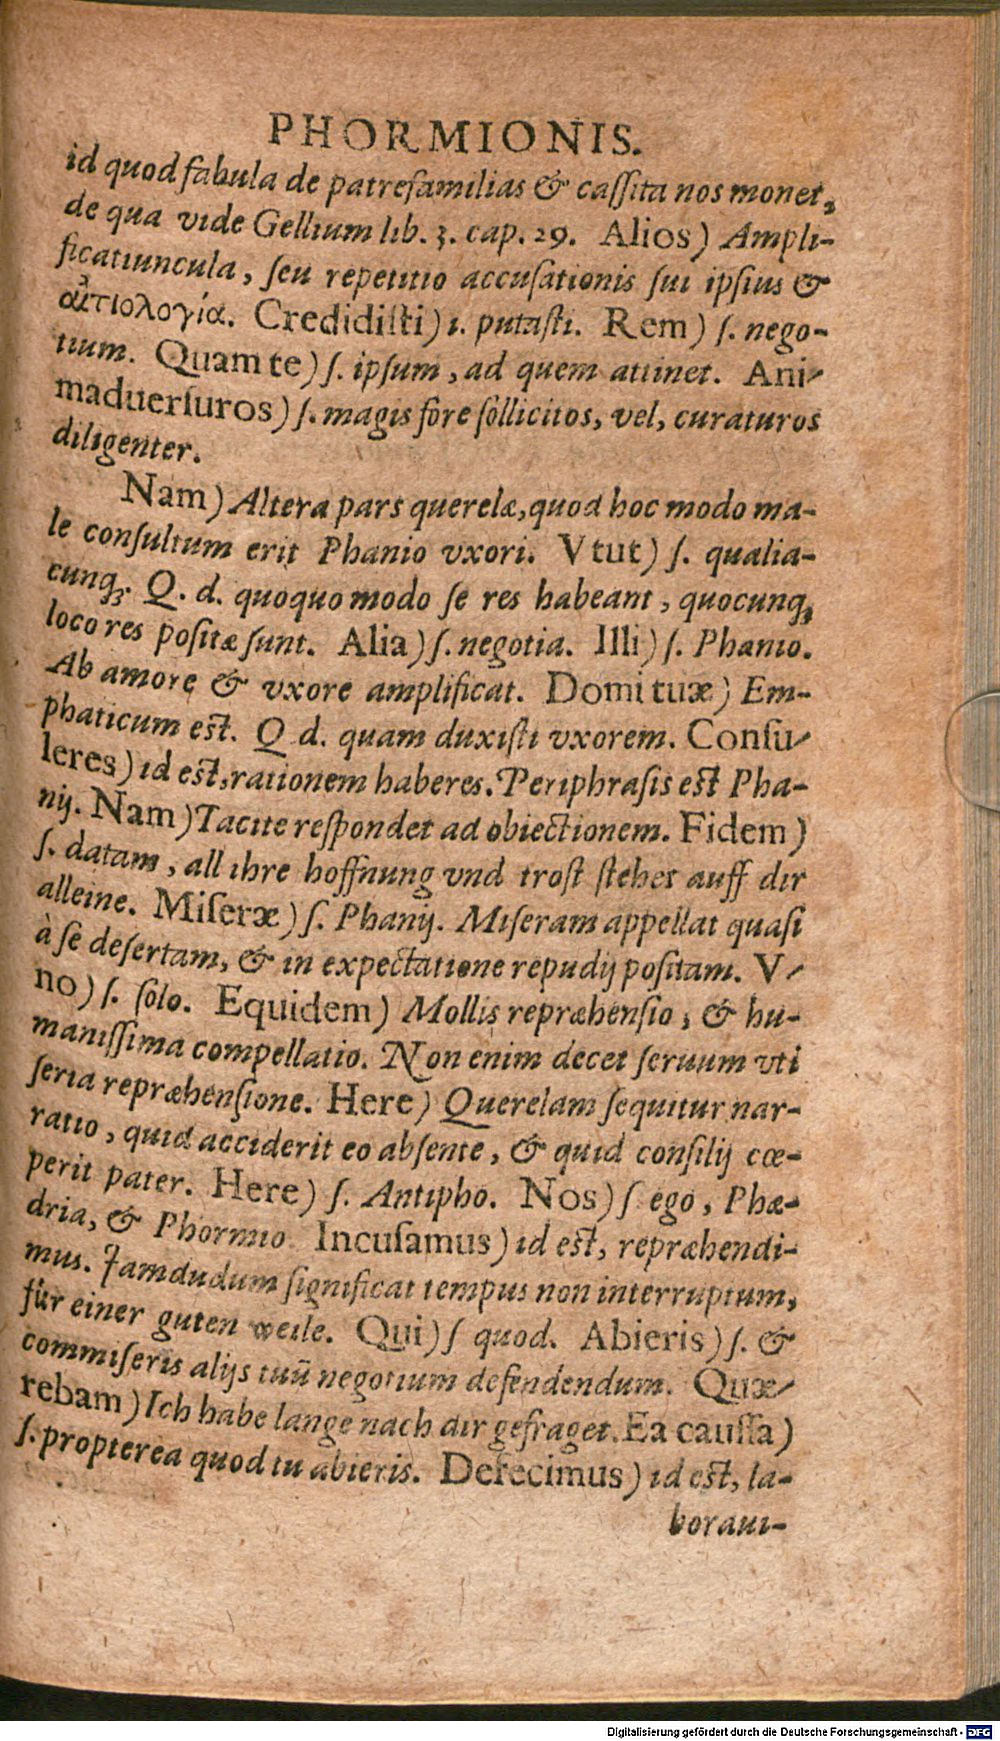 PHORMIONIS.
id quod fabula de patrefamilias & caſſita nos monet,
de qua vide Gellium lib. 3. cap. 29. Alios) Ampli-
ficatiuncula, ſeu repetitio accuſationis ſui ipſius &
αἰτιολογία. Credidiſti) i. putaſti. Rem) ſ. nego-
tium. Quam te) ſ. ipſum, ad quem attinet. Ani-
maduerſuros) ſ. magis fore ſollicitos, vel, curaturos
diligenter.
Nam) Altera pars querelæ, quod hoc modo ma-
le conſultum erit Phanio vxori. Vtut) ſ. qualia-
cunq;. Q. d. quoquo modo ſe res habeant, quocunq;
loco res poſitæ ſunt. Alia) ſ. negotia. Illi) ſ. Phanio.
Ab amore & vxore amplificat. Domi tuæ) Em-
phaticum eſt. Q d. quam duxiſti vxorem. Conſu-
leres) id eſt, rationem haberes. Periphraſis eſt Pha-
nij. Nam) Tacite reſpondet ad obiectionem. Fidem)
ſ. datam, all ihre hoffnung vnd troſt ſtehet auff dir
alleine. Miſeræ) ſ. Phanij. Miſeram appellat quaſi
à ſe deſertam, & in expectatione repudij poſitam. V-
no) ſ. ſolo. Equidem) Mollis repræhenſio, & hu-
maniſſima compellatio. Non enim decet ſeruum vti
ſeria repræhenſione. Here) Querelam ſequitur nar-
ratio, quid acciderit eo abſente, & quid conſilij cœ-
perit pater. Here) ſ. Antipho. Nos) ſ ego, Phæ-
dria, & Phormio Incuſamus) id eſt, repræhendi-
mus. Jamdudum ſignificat tempus non interruptum,
für einer guten weile. Qui) ſ quod. Abieris) ſ. &
commiſeris alijs tuũ negotium defendendum. Quæ-
rebam) Ich habe lange nach dir gefraget. Ea cauſſa)
ſ. propterea quod tu abieris. Defecimus) id eſt, la-
boraui-
Digitalisierung gefördert durch die Deutsche Forschungsgemeinschaft - DFG